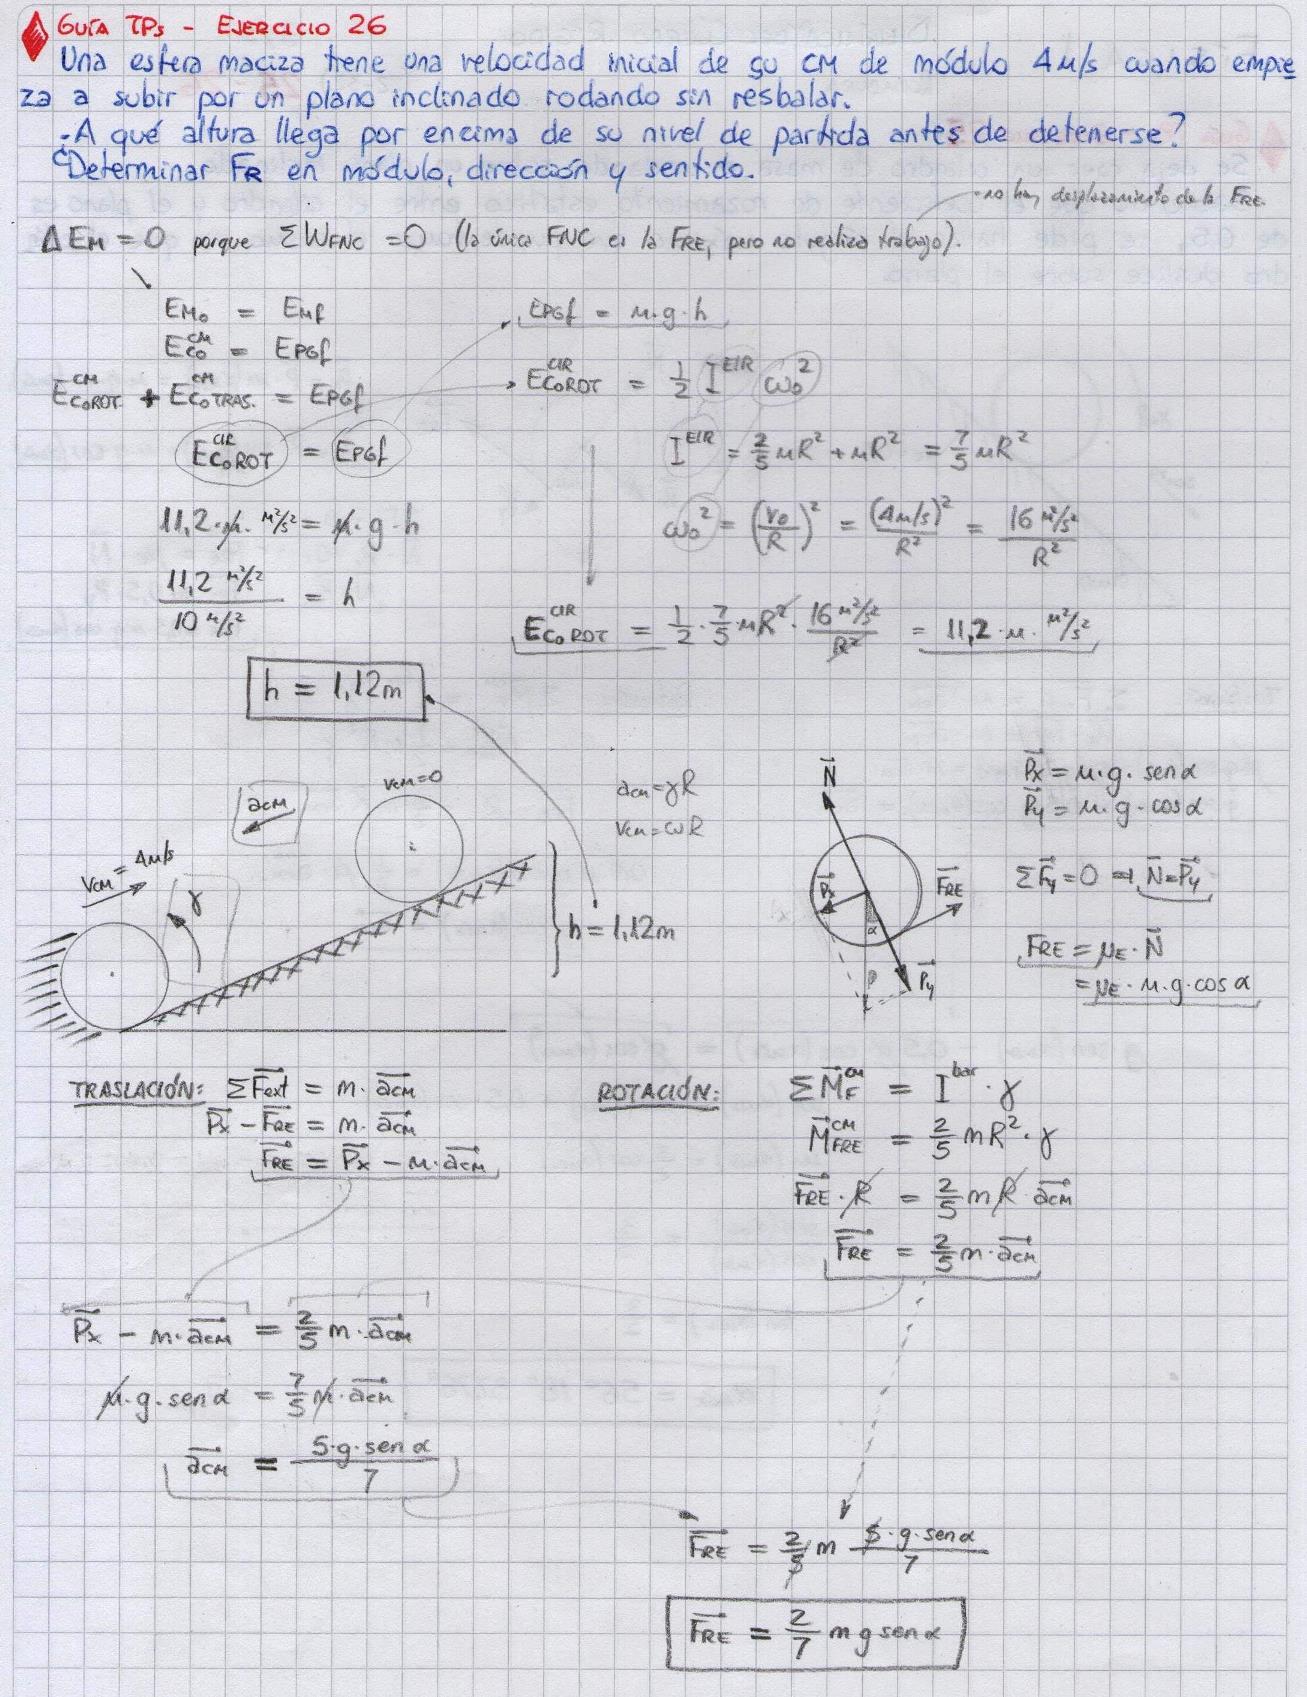 GUÍA TPs - EJERCICIO 26
Una esfera maciza tiene una velocidad inicial de su CM de módulo 4m/s cuando empie
za a subir por un plano inclinado rodando sin resbalar.
¿A qué altura llega por encima de su nivel de partida antes de detenerse?
Determinar FR en módulo, dirección y sentido.
no hay desplazamiento de la FRE.
ΔEM = 0 porque ΣWFNC = 0 (la única FNC es la FRE, pero no realiza trabajo).
EM₀ = EMf
EC₀^CM = EPGf
EC₀ROT^CM + EC₀TRAS.^CM = EPGf
EC₀ROT^CIR = EPGf
11,2·m· m²/s² = m·g·h
11,2 m²/s² / 10 m/s² = h
h = 1,12m
EPGf = m·g·h
EC₀ROT^CIR = 1/2 I^EIR ω₀²
I^EIR = 2/5 mR² + mR² = 7/5 mR²
ω₀² = (v₀/R)² = (4m/s)²/R² = 16 m²/s² / R²
EC₀ROT^CIR = 1/2 · 7/5 mR² · 16 m²/s² / R² = 11,2·m· m²/s²
aCM
vCM=0
VCM = 4m/s
γ
h = 1,12m
aCM = γR
VCM = ωR
N
Px
FRE
α
P
Py
Px = m·g·senα
Py = m·g·cosα
ΣFy = 0 → N = Py
FRE = μE·N
= μE·m·g·cosα
TRASLACIÓN: ΣFext = m·aCM
Px - FRE = m·aCM
FRE = Px - m·aCM
ROTACIÓN: ΣM_F^CM = I^bar·γ
M_FRE^CM = 2/5 mR²·γ
FRE·R = 2/5 mR aCM
FRE = 2/5 m·aCM
Px - m·aCM = 2/5 m·aCM
m·g·senα = 7/5 m·aCM
aCM = 5·g·senα / 7
FRE = 2/5 m 5·g·senα / 7
FRE = 2/7 m g senα